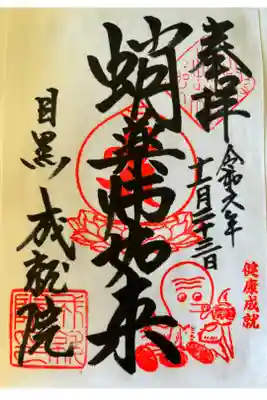 奉拝
令和六年
十一月二十三日
健康成就
蛸薬師如来
目黒
成就院